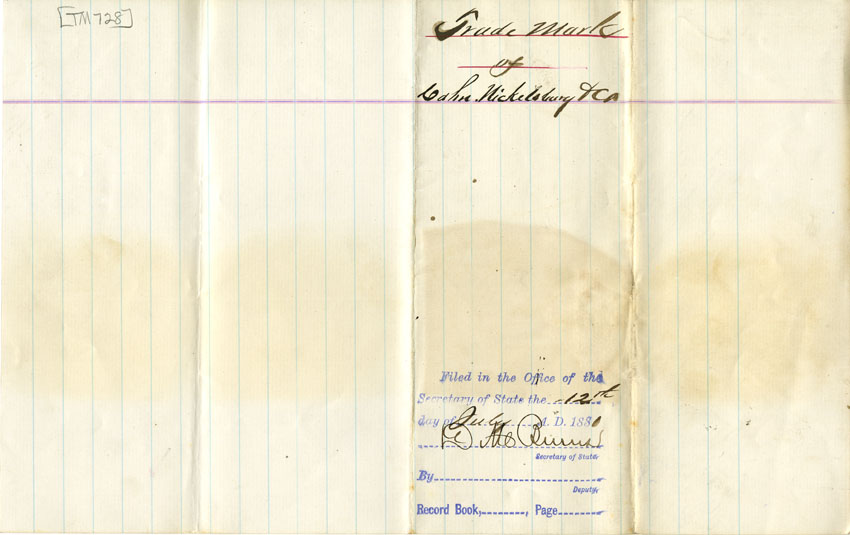 [TM 728]
Trade Mark
of
Cahn Nickelsburg & Co
Filed in the Office of the
Secretary of State the 12th
day of July A. D. 1881
D. M. Burns
Secretary of State
By
Deputy
Record Book, , Page